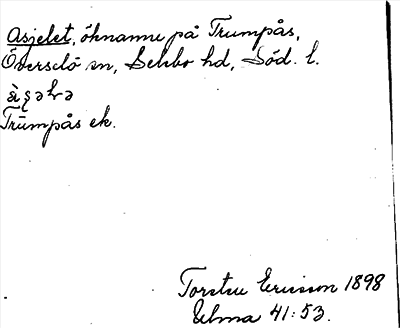 Asjelet, öknamn på Trumpås,
Överselö sn, Selebo hd, Söd. l.
Trumpås ek.
Torsten Ericsson 1898
Ulma 41:53.